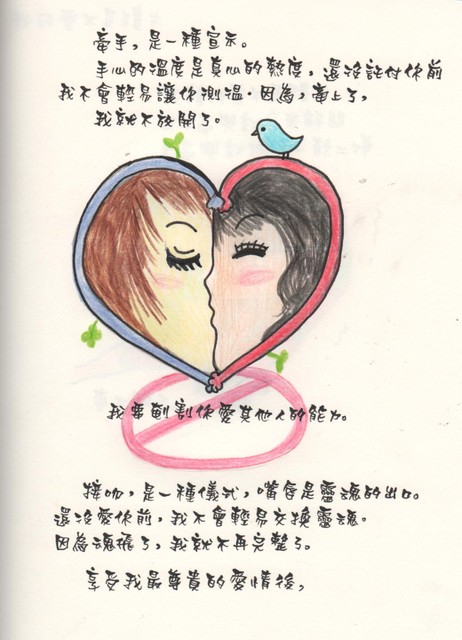 牽手，是一種宣示。
手心的溫度是真心的熱度，還沒託付你前
我不會輕易讓你測溫，因為，牽上了，
我就不放開了。
我要閹割你愛其他人的能力。
接吻，是一種儀式，嘴唇是靈魂的出口。
還沒愛你前，我不會輕易交換靈魂。
因為魂飛了，我就不再完整了。
享受我最尊貴的愛情後，